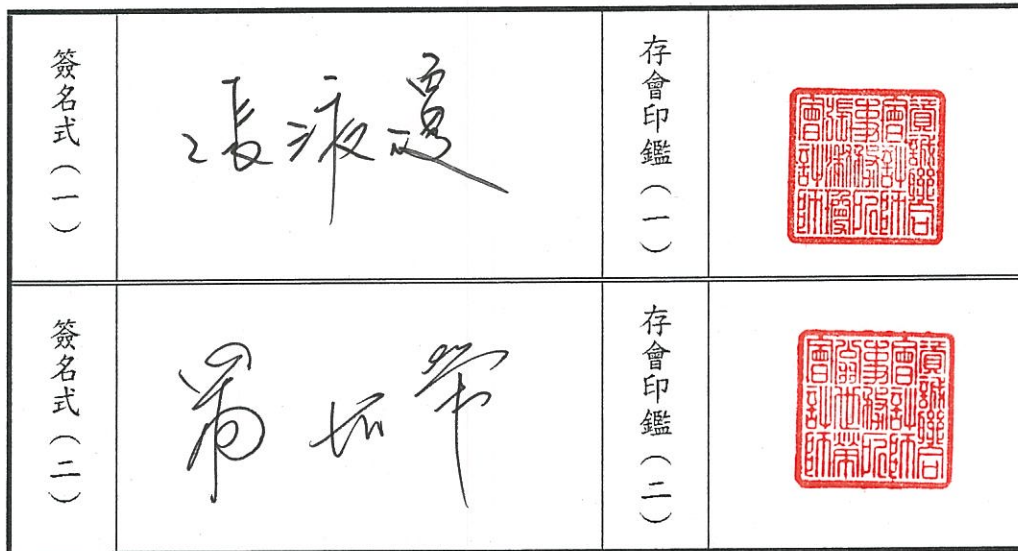 簽名式（一）
張淑瓊
存會印鑑（一）
資誠聯合
會計師
事務所
張淑瓊
會計師
簽名式（二）
翁世榮
存會印鑑（二）
資誠聯合
會計師
事務所
翁世榮
會計師